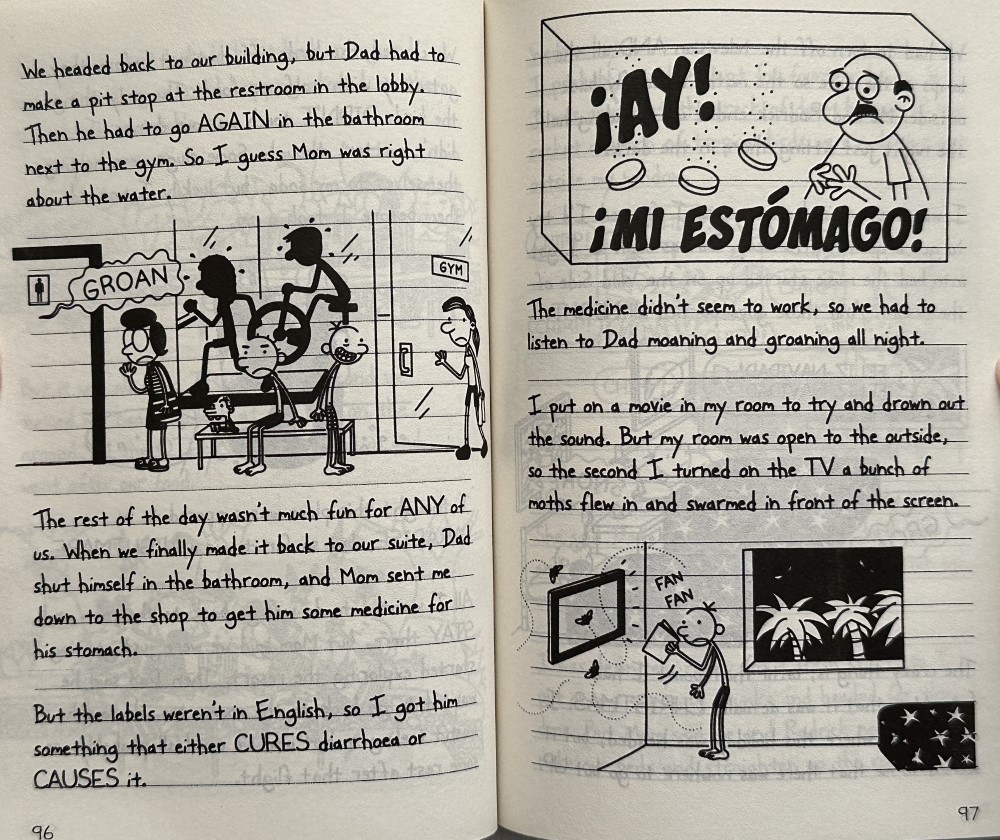 We headed back to our building, but Dad had to
make a pit stop at the restroom in the lobby.
Then he had to go AGAIN in the bathroom
next to the gym. So I guess Mom was right
about the water.
GROAN
GYM
The rest of the day wasn't much fun for ANY of
us. When we finally made it back to our suite, Dad
shut himself in the bathroom, and Mom sent me
down to the shop to get him some medicine for
his stomach.
But the labels weren't in English, so I got him
something that either CURES diarrhoea or
CAUSES it.
96
¡AY!
¡MI ESTÓMAGO!
The medicine didn't seem to work, so we had to
listen to Dad moaning and groaning all night.
I put on a movie in my room to try and drown out
the sound. But my room was open to the outside,
so the second I turned on the TV a bunch of
moths flew in and swarmed in front of the screen.
FAN
FAN
97